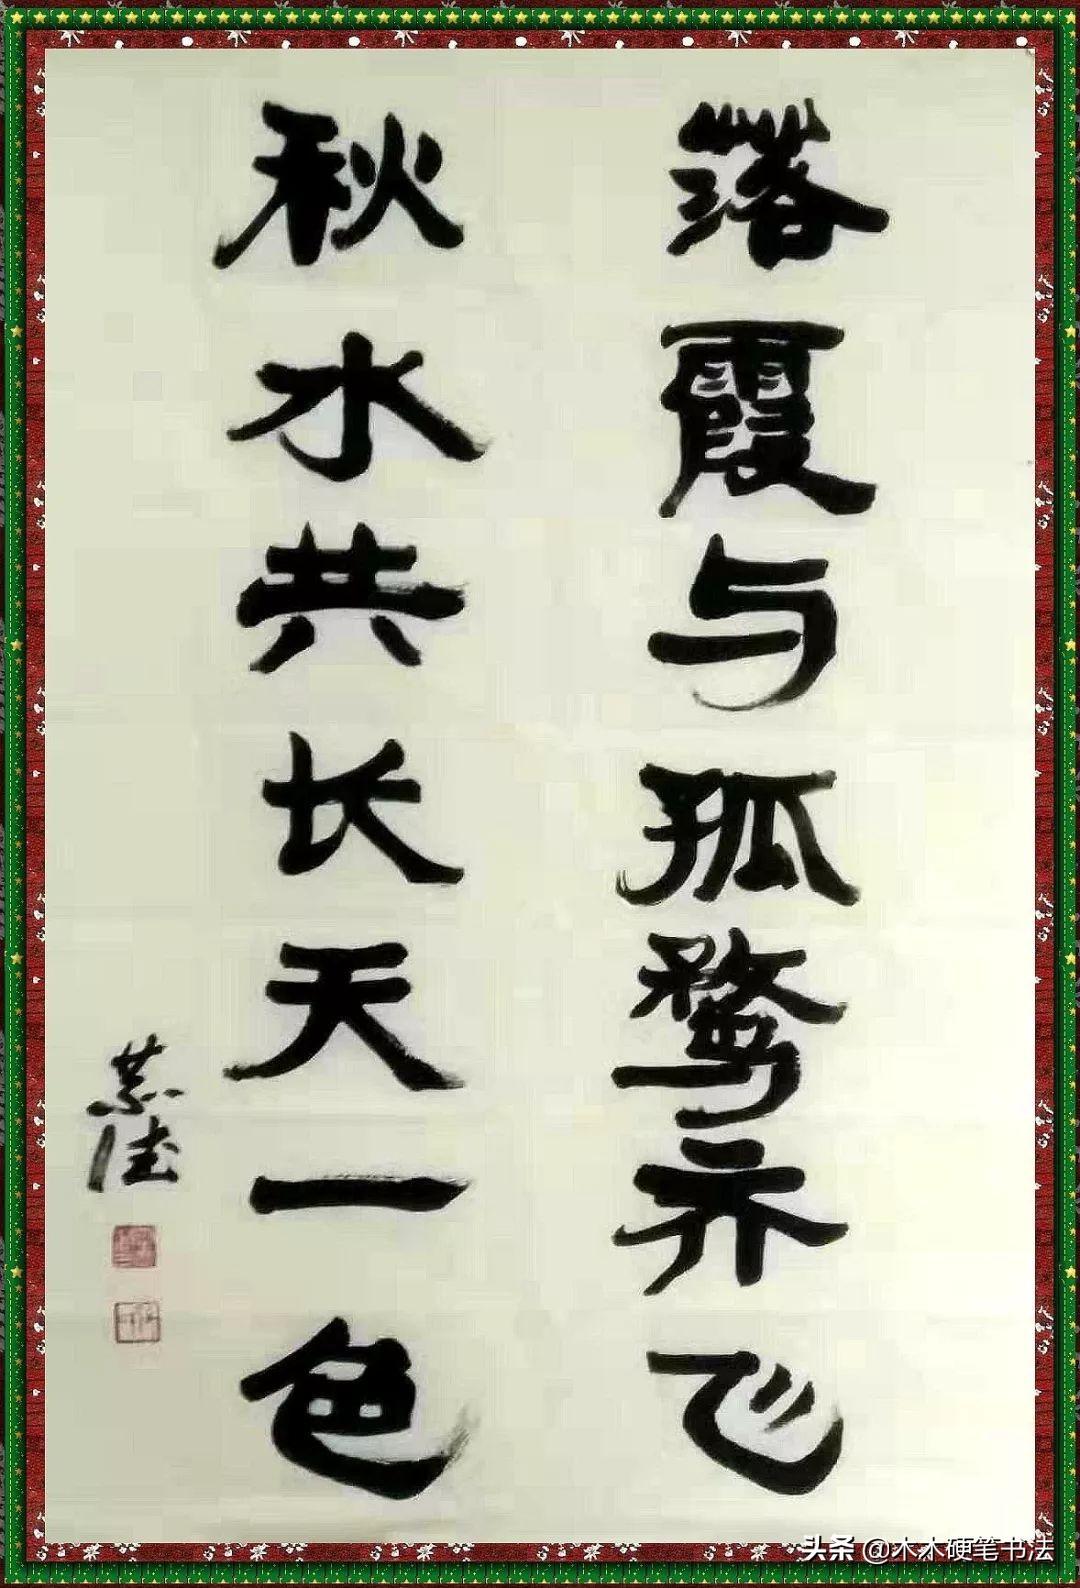 落霞与孤鹜齐飞
秋水共长天一色
头条 @木木硬笔书法